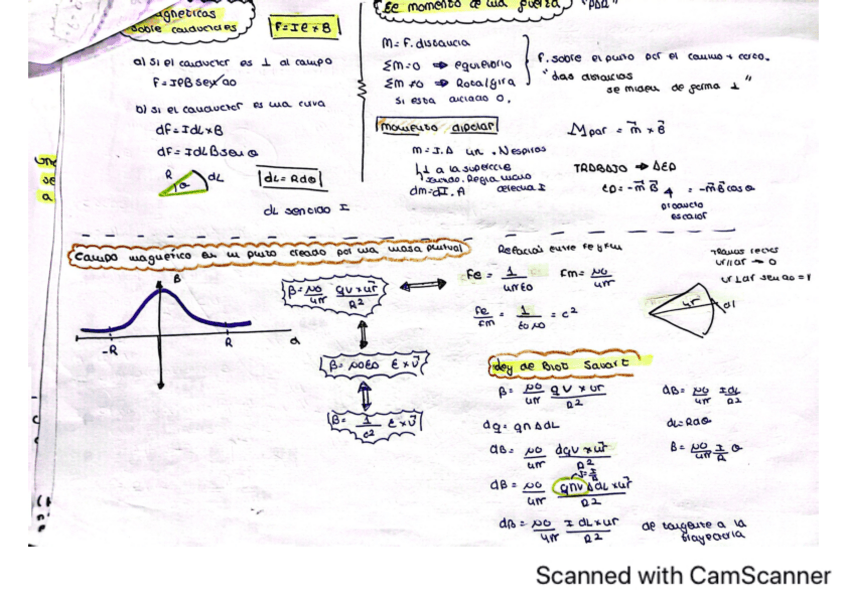 gneticas
sobre conductores
F=Iℓ×B
a) si el conductor es ⊥ al campo
F=IℓB sen 90
b) si el conductor es una curva
dF=IdL×B
dF=IdLBsen θ
R θ dL
dL=Rdθ
dL sentido I
de momento de una fuerza "POA"
M=F.distancia
ΣM=0 ⇒ equilibrio
ΣM≠0 ⇒ Rota/gira
si esta anclado O.
F. sobre el punto por el camino + corto.
"las distancias
se miden de forma ⊥"
momento dipolar
m=I.A un. Nespiras
↳⊥ a la superficie
segundo. Regla mano derecha I
dm=dI.A
M par = m⃗ × B⃗
TRABAJO → ΔEP
EP=-m⃗ B⃗ = -m⃗B⃗cos θ
producto
escalar
Campo magnetico en un punto creado por una masa puntual
B
-R R
B= μ0/4π qv×ur⃗/R²
B=μ0ε0 E×v⃗
B= 1/c² E×v⃗
Relacion entre Fe y Fm
Fe = 1/4πε0 Fm= μ0/4π
Fe/Fm = 1/ε0μ0 = c²
Tramos rectos
ur//dr → 0
ur⊥dr sen 90=1
ur dl
Ley de Biot Savart
B= μ0/4π qv×ur/R²
dq= qn A dL
dB= μ0/4π dqv×ur⃗/R²
dB= μ0/4π qnvAdL×ur⃗/R²
dB= μ0/4π I dL×ur/R²
dB= μ0/4π IdL/R²
dL=Rdθ
B= μ0/4π I/R θ
de tangente a la
trayectoria
Scanned with CamScanner